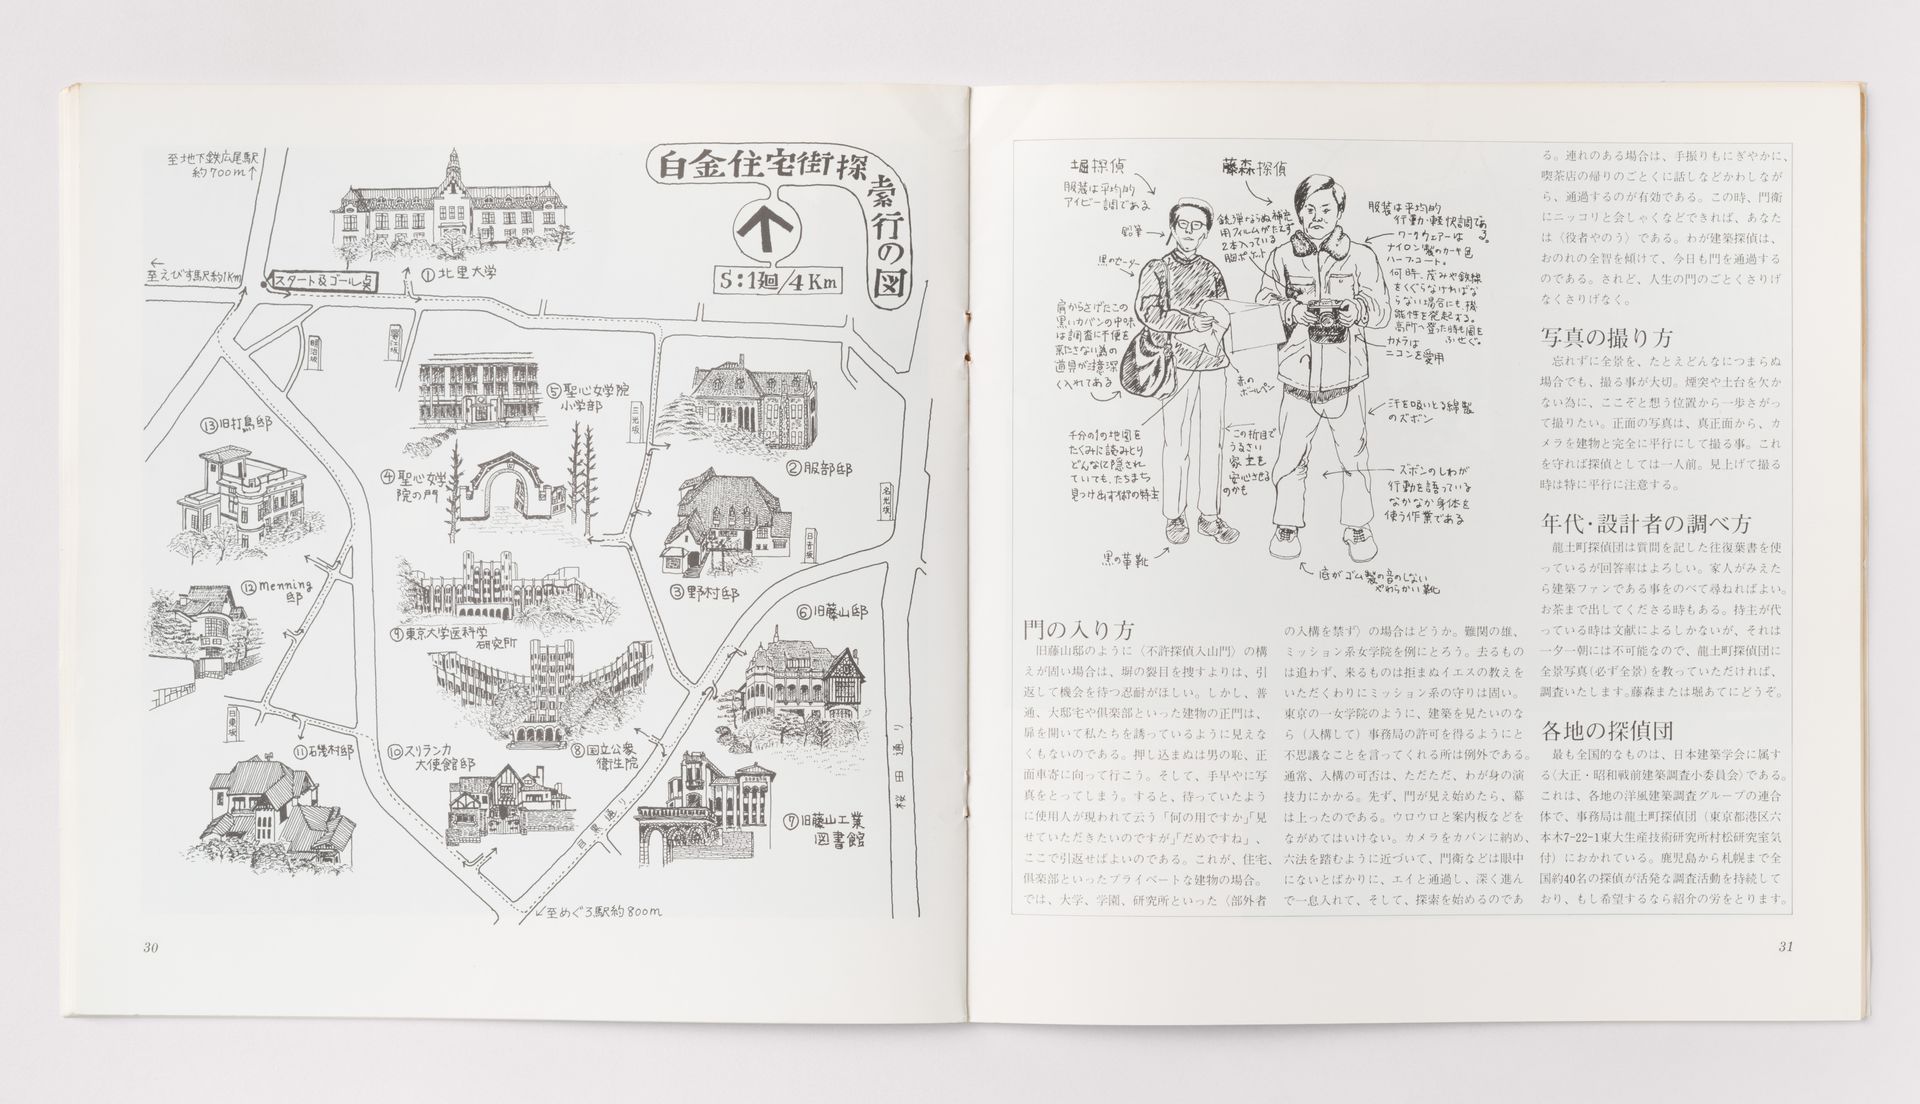 至地下鉄広尾駅
約700m↑
白金住宅街探索行の図
S:1廻/4Km
←
至えびす駅約1Km
スタート及ゴール点
①北里大学
明治坂
蜀江坂
三光坂
⑤聖心女学院
小学部
②服部邸
⑬旧打鳥邸
④聖心女学
院の門
名光坂
日吉坂
③野村邸
⑫Menning
邸
⑨東京大学医科学
研究所
⑥旧藤山邸
日東坂
⑪石磯村邸
⑩スリランカ
大使館邸
⑧国立公衆
衛生院
目黒通り
桜田通り
⑦旧藤山工業
図書館
↙至めぐろ駅約800m
30
堀探偵
服装は平均的
アイビー調である
鉛筆
黒のセーター
肩からさげたこの
黒いカバンの中味
は調査に不便を
来たさない為の
道具が注意深
く入れてある
千分の1の地図を
たくみに読みとり
どんなに隠され
ていても、たちまち
見つけ出す術の特主
黒の革靴
赤の
ボールペン
この折目で
うるさい
家主を
安心させる
のかも
藤森探偵
銃弾ならぬ補充
用フィルムがたえず
2本入っている
胸ポケット
服装は平均的
行動・軽快調である。
ワークウェアーは
ナイロン製のカーキ色
ハーフコート。
何時、茂みや鉄線
をくぐらなければな
らない場合にも、機
能性を発起する。
高所へ登った時風を
ふせぐ。
カメラは
ニコンを愛用
汗を吸いとる綿製
のズボン
ズボンのしわが
行動を語っている
なかなか身体を
使う作業である
底がゴム製の音のしない
やわらかい靴
門の入り方
旧藤山邸のように〈不許探偵入山門〉の構
えが固い場合は、塀の裂目を捜すよりは、引
返して機会を待つ忍耐がほしい。しかし、普
通、大邸宅や倶楽部といった建物の正門は、
扉を開いて私たちを誘っているように見えな
くもないのである。押し込まぬは男の恥、正
面車寄に向って行こう。そして、手早やに写
真をとってしまう。すると、待っていたよう
に使用人が現われて云う「何の用ですか」「見
せていただきたいのですが」「だめですね」、
ここで引返せばよいのである。これが、住宅、
倶楽部といったプライベートな建物の場合。
では、大学、学園、研究所といった〈部外者
の入構を禁ず〉の場合はどうか。難関の雄、
ミッション系女学院を例にとろう。去るもの
は追わず、来るものは拒まぬイエスの教えを
いただくわりにミッション系の守りは固い。
東京の一女学院のように、建築を見たいのな
ら（入構して）事務局の許可を得るようにと
不思議なことを言ってくれる所は例外である。
通常、入構の可否は、ただただ、わが身の演
技力にかかる。先ず、門が見え始めたら、幕
は上ったのである。ウロウロと案内板などを
ながめてはいけない。カメラをカバンに納め、
六法を踏むように近づいて、門衛などは眼中
にないとばかりに、エイと通過し、深く進ん
で一息入れて、そして、探索を始めるのであ
る。連れのある場合は、手振りもにぎやかに、
喫茶店の帰りのごとくに話しなどかわしなが
ら、通過するのが有効である。この時、門衛
にニッコリと会しゃくなどできれば、あなた
は〈役者やのう〉である。わが建築探偵は、
おのれの全智を傾けて、今日も門を通過する
のである。されど、人生の門のごとくさりげ
なくさりげなく。
写真の撮り方
忘れずに全景を、たとえどんなにつまらぬ
場合でも、撮る事が大切。煙突や土台を欠か
ない為に、ここぞと想う位置から一歩さがっ
て撮りたい。正面の写真は、真正面から、カ
メラを建物と完全に平行にして撮る事。これ
を守れば探偵としては一人前。見上げて撮る
時は特に平行に注意する。
年代・設計者の調べ方
龍土町探偵団は質問を記した往復葉書を使
っているが回答率はよろしい。家人がみえた
ら建築ファンである事をのべて尋ねればよい。
お茶まで出してくださる時もある。持主が代
っている時は文献によるしかないが、それは
一夕一朝には不可能なので、龍土町探偵団に
全景写真(必ず全景)を教っていただければ、
調査いたします。藤森または堀あてにどうぞ。
各地の探偵団
最も全国的なものは、日本建築学会に属す
る〈大正・昭和戦前建築調査小委員会〉である。
これは、各地の洋風建築調査グループの連合
体で、事務局は龍土町探偵団（東京都港区六
本木7-22-1東大生産技術研究所村松研究室気
付）におかれている。鹿児島から札幌まで全
国約40名の探偵が活発な調査活動を持続して
おり、もし希望するなら紹介の労をとります。
31